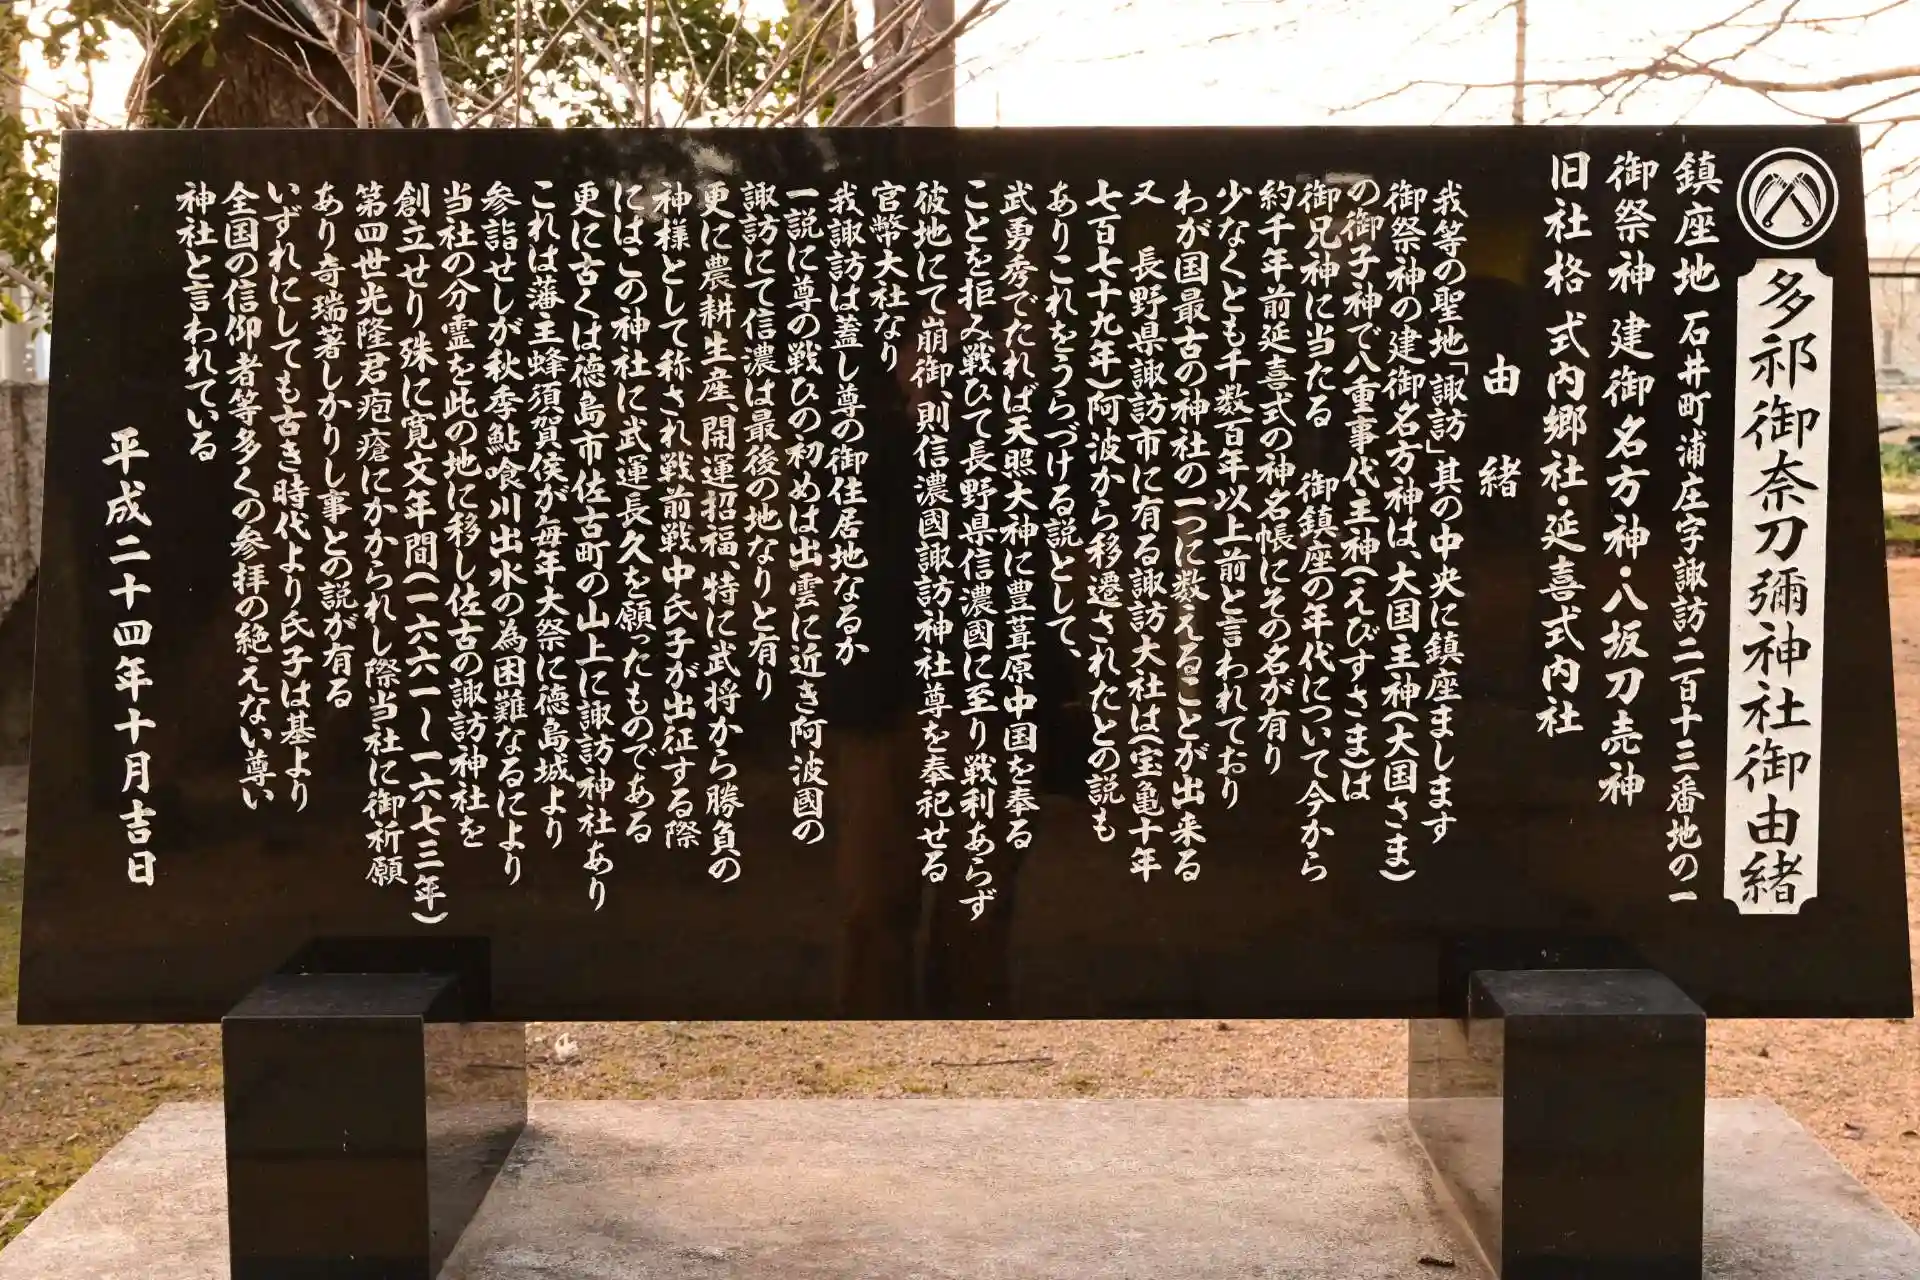 多祁御奈刀彌神社御由緒
鎮座地 石井町浦庄字諏訪二百十三番地の一
御祭神 建御名方神・八坂刀売神
旧社格 式内郷社・延喜式内社
由緒
我等の聖地「諏訪」其の中央に鎮座まします
御祭神の建御名方神は、大国主神(大国さま)
の御子神で八重事代主神(えびすさま)は
御兄神に当たる 御鎮座の年代について今から
約千年前延喜式の神名帳にその名が有り
少なくとも千数百年以上前と言われており
わが国最古の神社の一つに数えることが出来る
又 長野県諏訪市に有る諏訪大社は(宝亀十年
七百七十九年)阿波から移遷されたとの説も
ありこれをうらづける説として、
武勇秀でたれば天照大神に豊葺原中国を奉る
ことを拒み戦ひて長野県信濃國に至り戦利あらず
彼地にて崩御、則信濃國諏訪神社尊を奉祀せる
官幣大社なり
我諏訪は蓋し尊の御住居地なるか
一説に尊の戦ひの初めは出雲に近き阿波國の
諏訪にて信濃は最後の地なりと有り
更に農耕生産、開運招福、特に武将から勝負の
神様として称され戦前戦中氏子が出征する際
にはこの神社に武運長久を願ったものである
更に古くは徳島市佐古町の山上に諏訪神社あり
これは藩王蜂須賀侯が毎年大祭に徳島城より
参詣せしが秋季鮎喰川出水の為困難なるにより
当社の分霊を此の地に移し佐古の諏訪神社を
創立せり殊に寛文年間(一六六一〜一六七三年)
第四世光隆君疱瘡にかかられし際当社に御祈願
あり奇瑞著しかりし事との説が有る
いずれにしても古き時代より氏子は基より
全国の信仰者等多くの参拝の絶えない尊い
神社と言われている
平成二十四年十月吉日